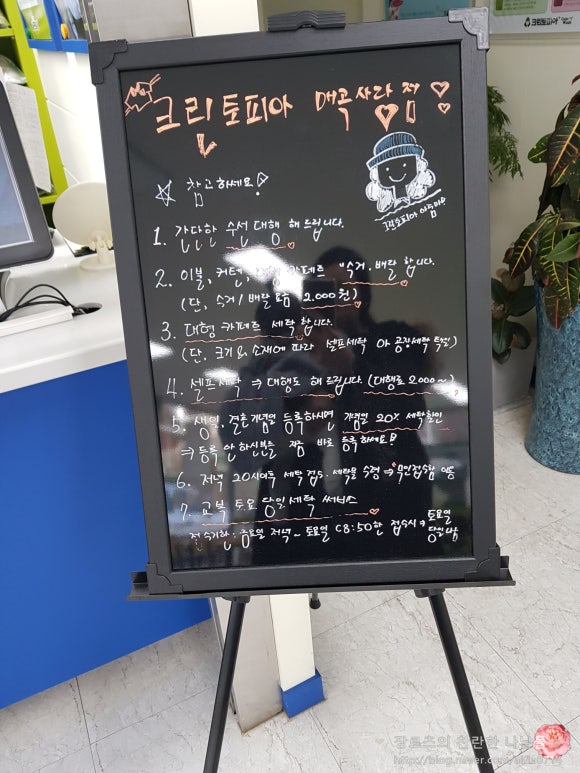 크린토피아 매곡사랑점
참고하세요!
1. 간단한 수선 대행 해 드립니다.
2. 이불, 커텐, 카페트 "수거, 배달 합니다.
(단, 수거/배달 요금 2,000원)
3. 대형 카페트 세탁합니다.
(단, 크기 & 소재에 따라 셀프세탁 or 공장세탁 특진)
4. 셀프세탁 ⇒ 대행도 해 드립니다. (대행료 2000~)
5. 생일, 결혼기념일 등록하시면 기념일 20% 세탁할인
⇒ 등록 안 하신분들 지금 바로 등록하세요!!
6. 저녁 20시이후 세탁 접수, 세탁물 수령 ⇒ 무인접수함 이용
7. 교복 토요 당일세탁 써비스
접수기한: 금요일 저녁 ~ 토요일 08:50한 접수시 ⇒ 토요일
크린토피아
http://blog.naver.com/